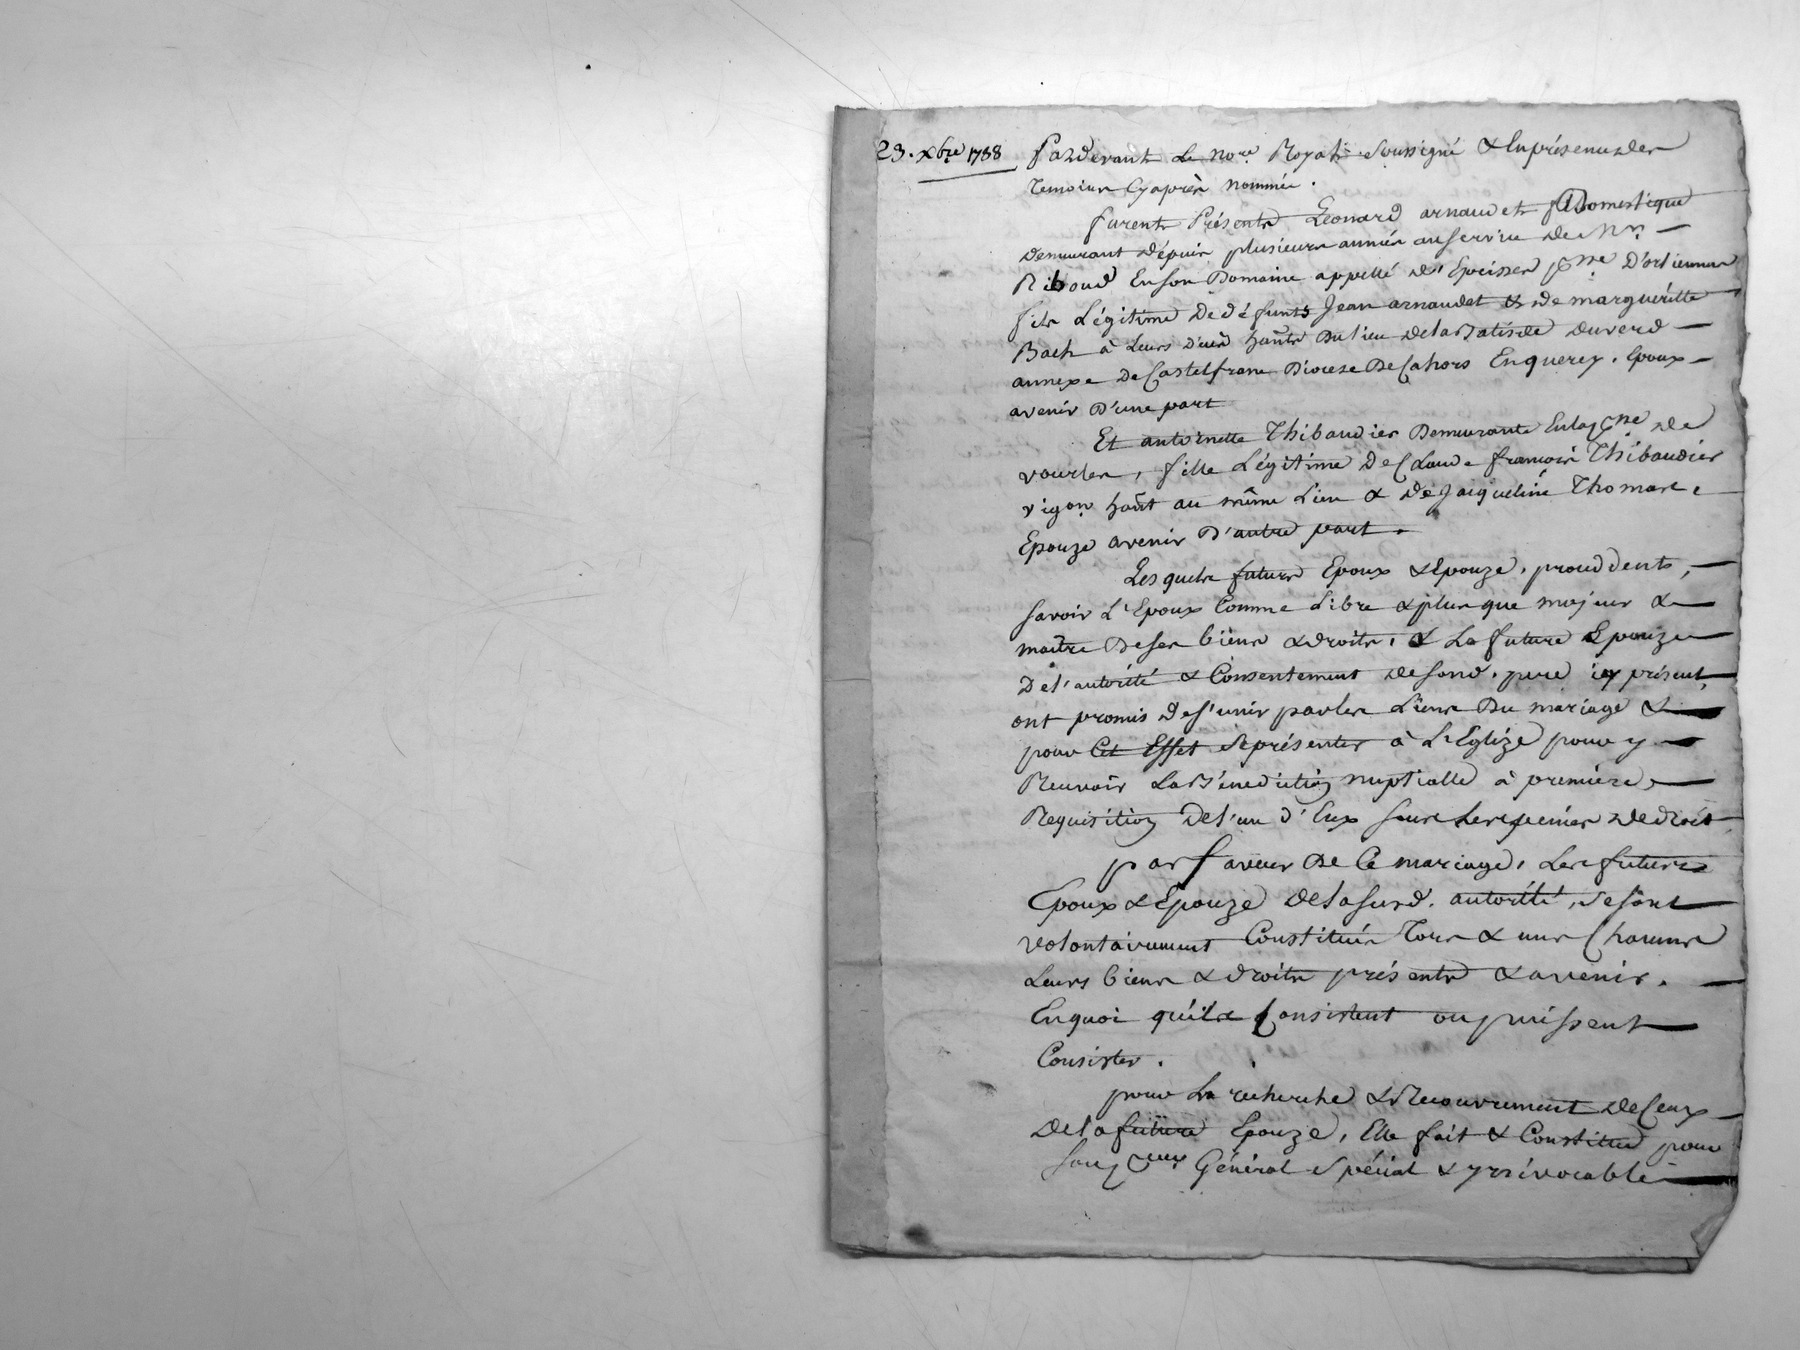 23. Xbre 1788
Pardevant Le no.re Royal Soussigné & En présence des
Temoins Cy après nommés.
furent Présents Léonard arnaudet Domestique
Demeurant depuis plusieurs années au service de Mr.
Riboud En son Domaine appellé des Epeisses psse D'orliennas
fils Légitime De défunts Jean arnaudet & de marguéritte
Bach à Leurs vivants habts Du lieu de la Batisde duverd
annexe De Castelfranc Diocese De Cahors En querey. Epoux
avenir D'une part
Et antoinette Thibaudier Demeurante En la psse de
vourles, fille Légitime De Claude françois Thibaudier
vigon habt au même Lieu & de Jacqueline Thomas.
Epouze avenir D'autre part.
Lesquels futurs Epoux & Epouze, procèddents,
savoir L'Epoux Comme Libre & plus que majeur &
maitre De ses biens & droits, & La future Epouze
De l'autorité & Consentement de sond. pere icy présent,
ont promis de s'unir par les Liens Du mariage &
pour Cet Effet se présenter à L'Eglize pour y
Recevoir La Bénédiction nuptialle à première
Requisition De l'un d'Eux sous les peines de droit
par faveur De Ce mariage, Les futurs
Epoux & Epouze de la susd. autorité, se sont
volontairement Constitués Tous & uns Chacuns
Leurs biens & droits présents & avenir.
En quoi qu'ils Consistent ou puissent
Consister.
pour La recherche & Recouvrement de Ceux
de la future Epouze, Elle fait & Constitue pour
son pcur Général Spécial & yrrévocable